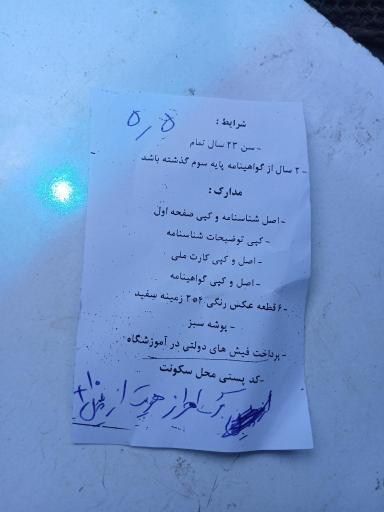 شرایط :
۵٫۵
- سن ۲۳ سال تمام
- ۲ سال از گواهینامه پایه سوم گذشته باشد
مدارک :
- اصل شناسنامه و کپی صفحه اول
- کپی توضیحات شناسنامه
- اصل و کپی کارت ملی
- اصل و کپی گواهینامه
- ۶ قطعه عکس رنگی ۴*۳ زمینه سفید
- پوشه سبز
- پرداخت فیش های دولتی در آموزشگاه
- کد پستی محل سکونت
احراز هویت از
+۱۰